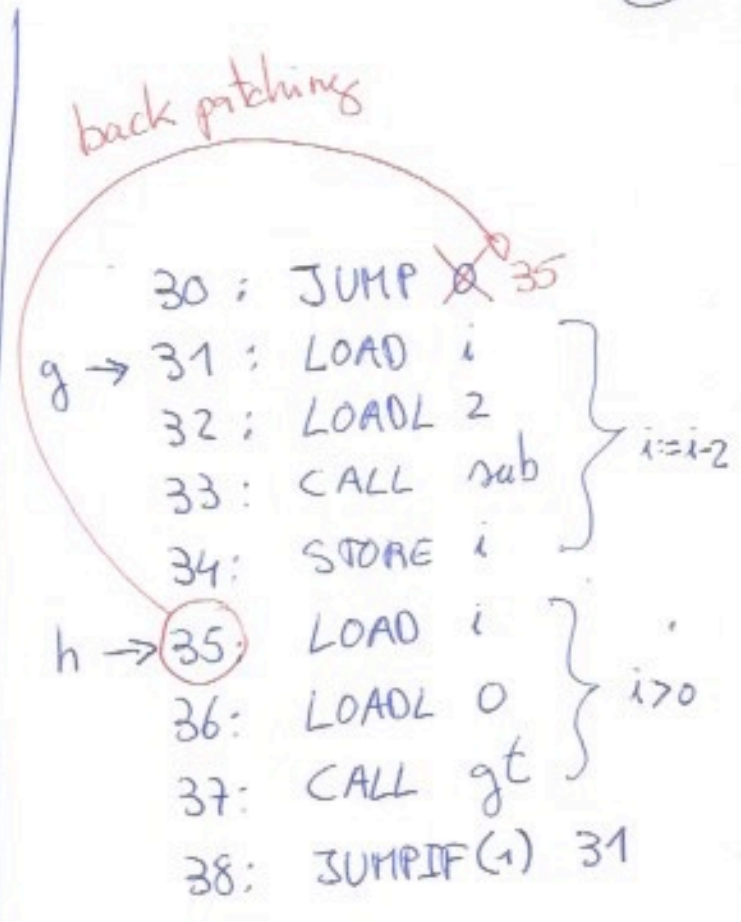 back patching
30: JUMP 0 35
g → 31: LOAD i
32: LOADL 2
33: CALL sub
i:=i-2
34: STORE i
h → 35: LOAD i
36: LOADL 0
i>0
37: CALL gt
38: JUMPIF(1) 31